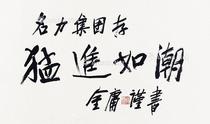 名力集團存
猛進如潮
金庸謹書